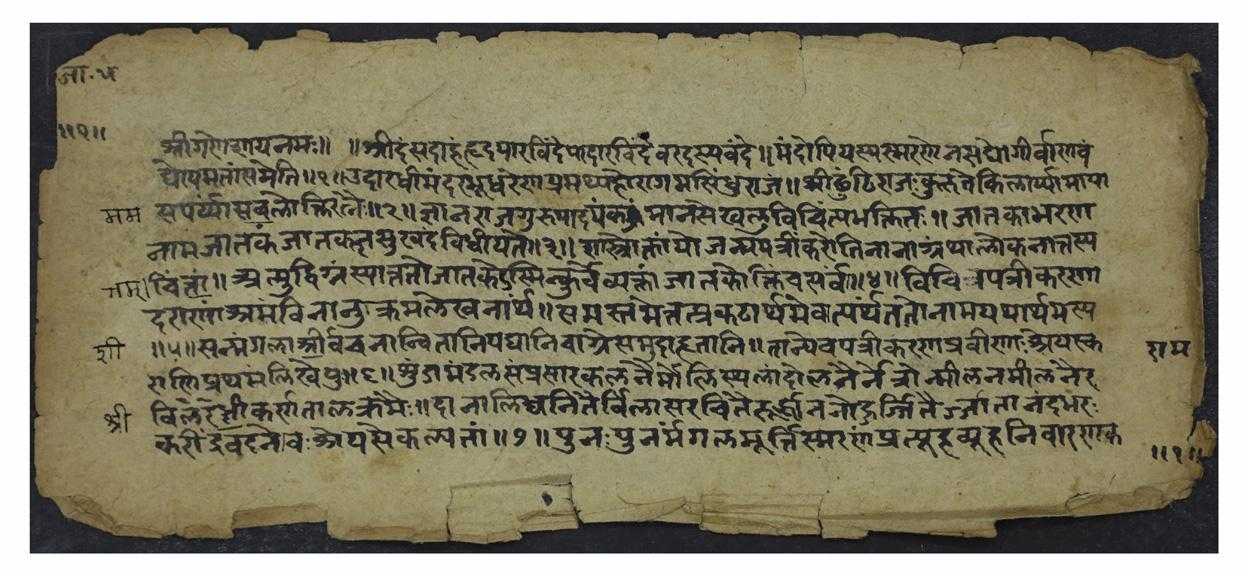 जा.प
॥१॥
श्रीगणेशायनमः॥ ॥श्रीदंसदाहंहृदयारविंदेपादारविंदंवरदस्यवंदे॥मंदोपियस्यस्मरणेनसद्योगीर्वाणवं
द्योपमतांसमेति॥१॥उदारधीमंदरभूधरेणप्रमथ्यहोरागमसिंधुराजं॥श्रीढुंढिराजःकुरुतेकिलार्य्यामार्या
मम सपर्य्याममलोक्तिरत्नैः॥२॥ज्ञानराजगुरुपादपंकजंमानसेखलुविचिंत्यभक्तितः॥जातकाभरण
नामजातकंजातकज्ञसुखदंविधीयते॥३॥शास्त्रोक्तांयोजन्मपत्रींकरोतिनानाग्रंथालोकनात्तस्य
ममा चिंता॥अत्युद्विग्नंस्यात्ततोजातकेऽस्मिन्कुर्वेव्यक्तांजातकोक्तिंचसर्वां॥४॥विचित्रपत्रीकरणा
दराणांश्रमंविनानुक्रमलेखनार्थं॥समस्तमेतत्प्रकटार्थमेवात्यर्थंततोनामयथार्थमस्य
शी ॥५॥सन्मंगलाशीर्वचनान्वितानिपद्यानिचाग्रेसमुदाहृतानि॥तान्येवपत्रीकरणप्रवीणःश्रेयस्क राम
राणिप्रथमंलिखेत्सु॥६॥शुंडामंडलसंप्रसारकलनैर्मौलिस्थलांदोलनैर्नेत्रोन्मीलनमीलनैर
श्री विलश्रीकर्णतालक्रमैः॥दानालिध्वनितैर्विलासचरितैरूर्ध्वाननोद्गर्जितैर्जातानंदभरः
करींद्रवदनोवःश्रेयसेकल्पतां॥७॥पुनःपुनर्मंगलमूर्त्तिस्मरणंप्रत्यूहव्यूहनिवारणक
॥१॥